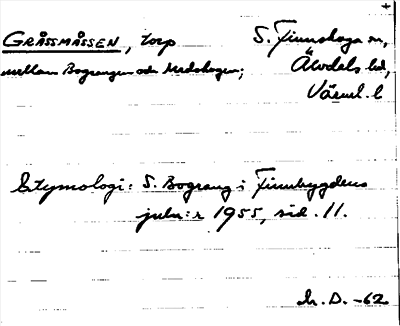 GRÅSSMÅSSEN, torp S. Finnskoga sn,
mellan Bograngen och Medskogen; Älvdals hd,
Värml. l
Etymologi: S. Bograng i Finnbygdens
julnr 1955, sid. 11.
D. -62